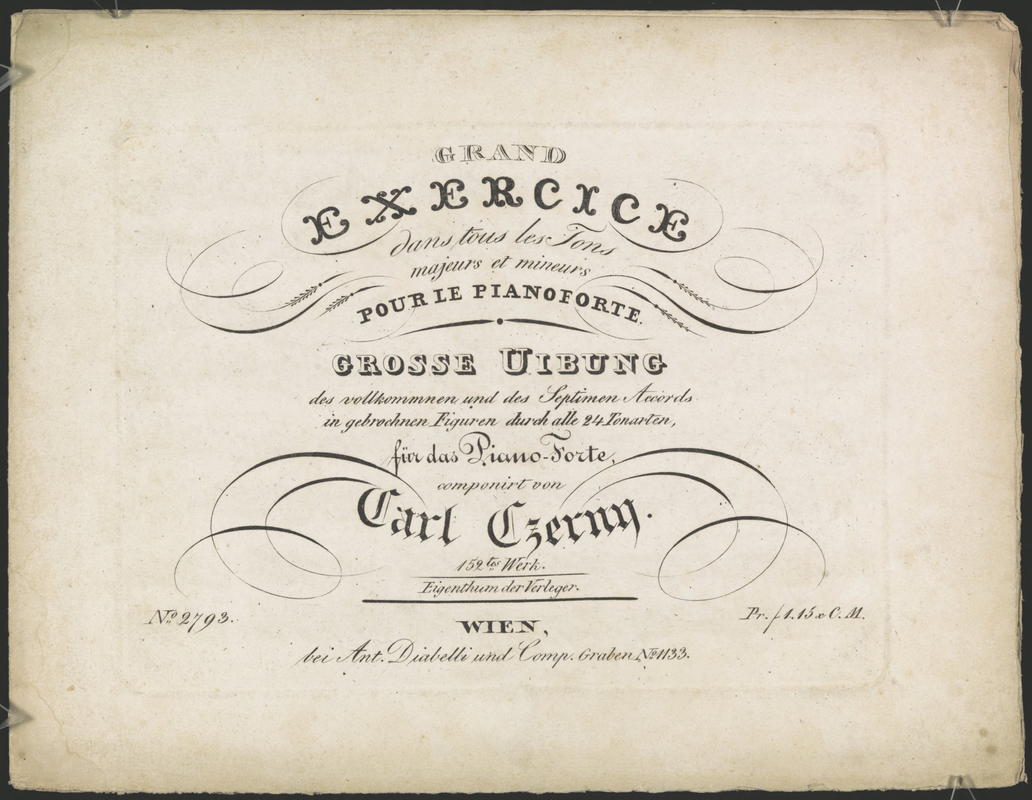 GRAND
EXERCICE
dans tous les Tons
majeurs et mineurs
POUR LE PIANOFORTE.
GROSSE UIBUNG
des vollkommnen und des Septimen Accords
in gebrochnen Figuren durch alle 24 Tonarten,
für das Piano-Forte,
componirt von
Carl Czerny.
152tes Werk.
Eigenthum der Verleger.
No. 2793.
Pr. f 1.15 x C. M.
WIEN,
bei Ant. Diabelli und Comp. Graben No. 1133.